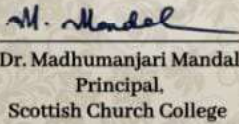 M. Mandal
Dr. Madhumanjari Mandal
Principal,
Scottish Church College